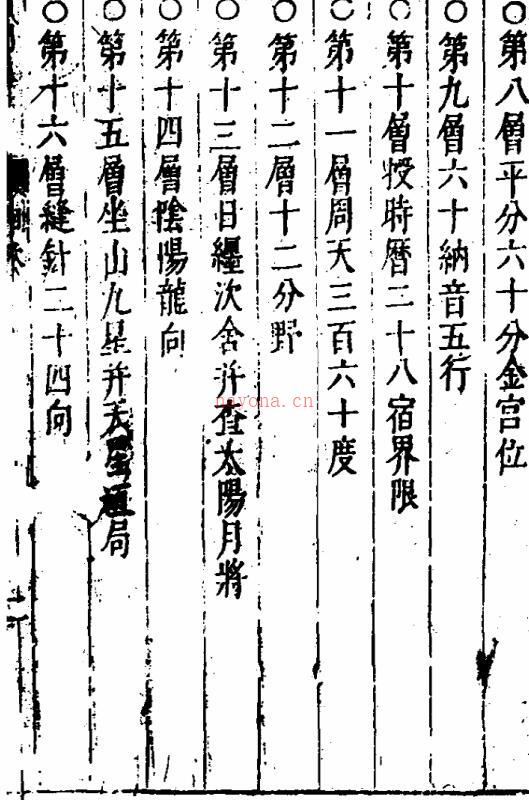 ○第八層平分六十分金宮位
○第九層六十納音五行
○第十層授時曆二十八宿界限
○第十一層周天三百六十度
○第十二層十二分野
○第十三層日纏次舍并查太陽月將
○第十四層陰陽龍向
○第十五層坐山九星并天星遁局
○第十六層縫針二十四向
nayona.cn